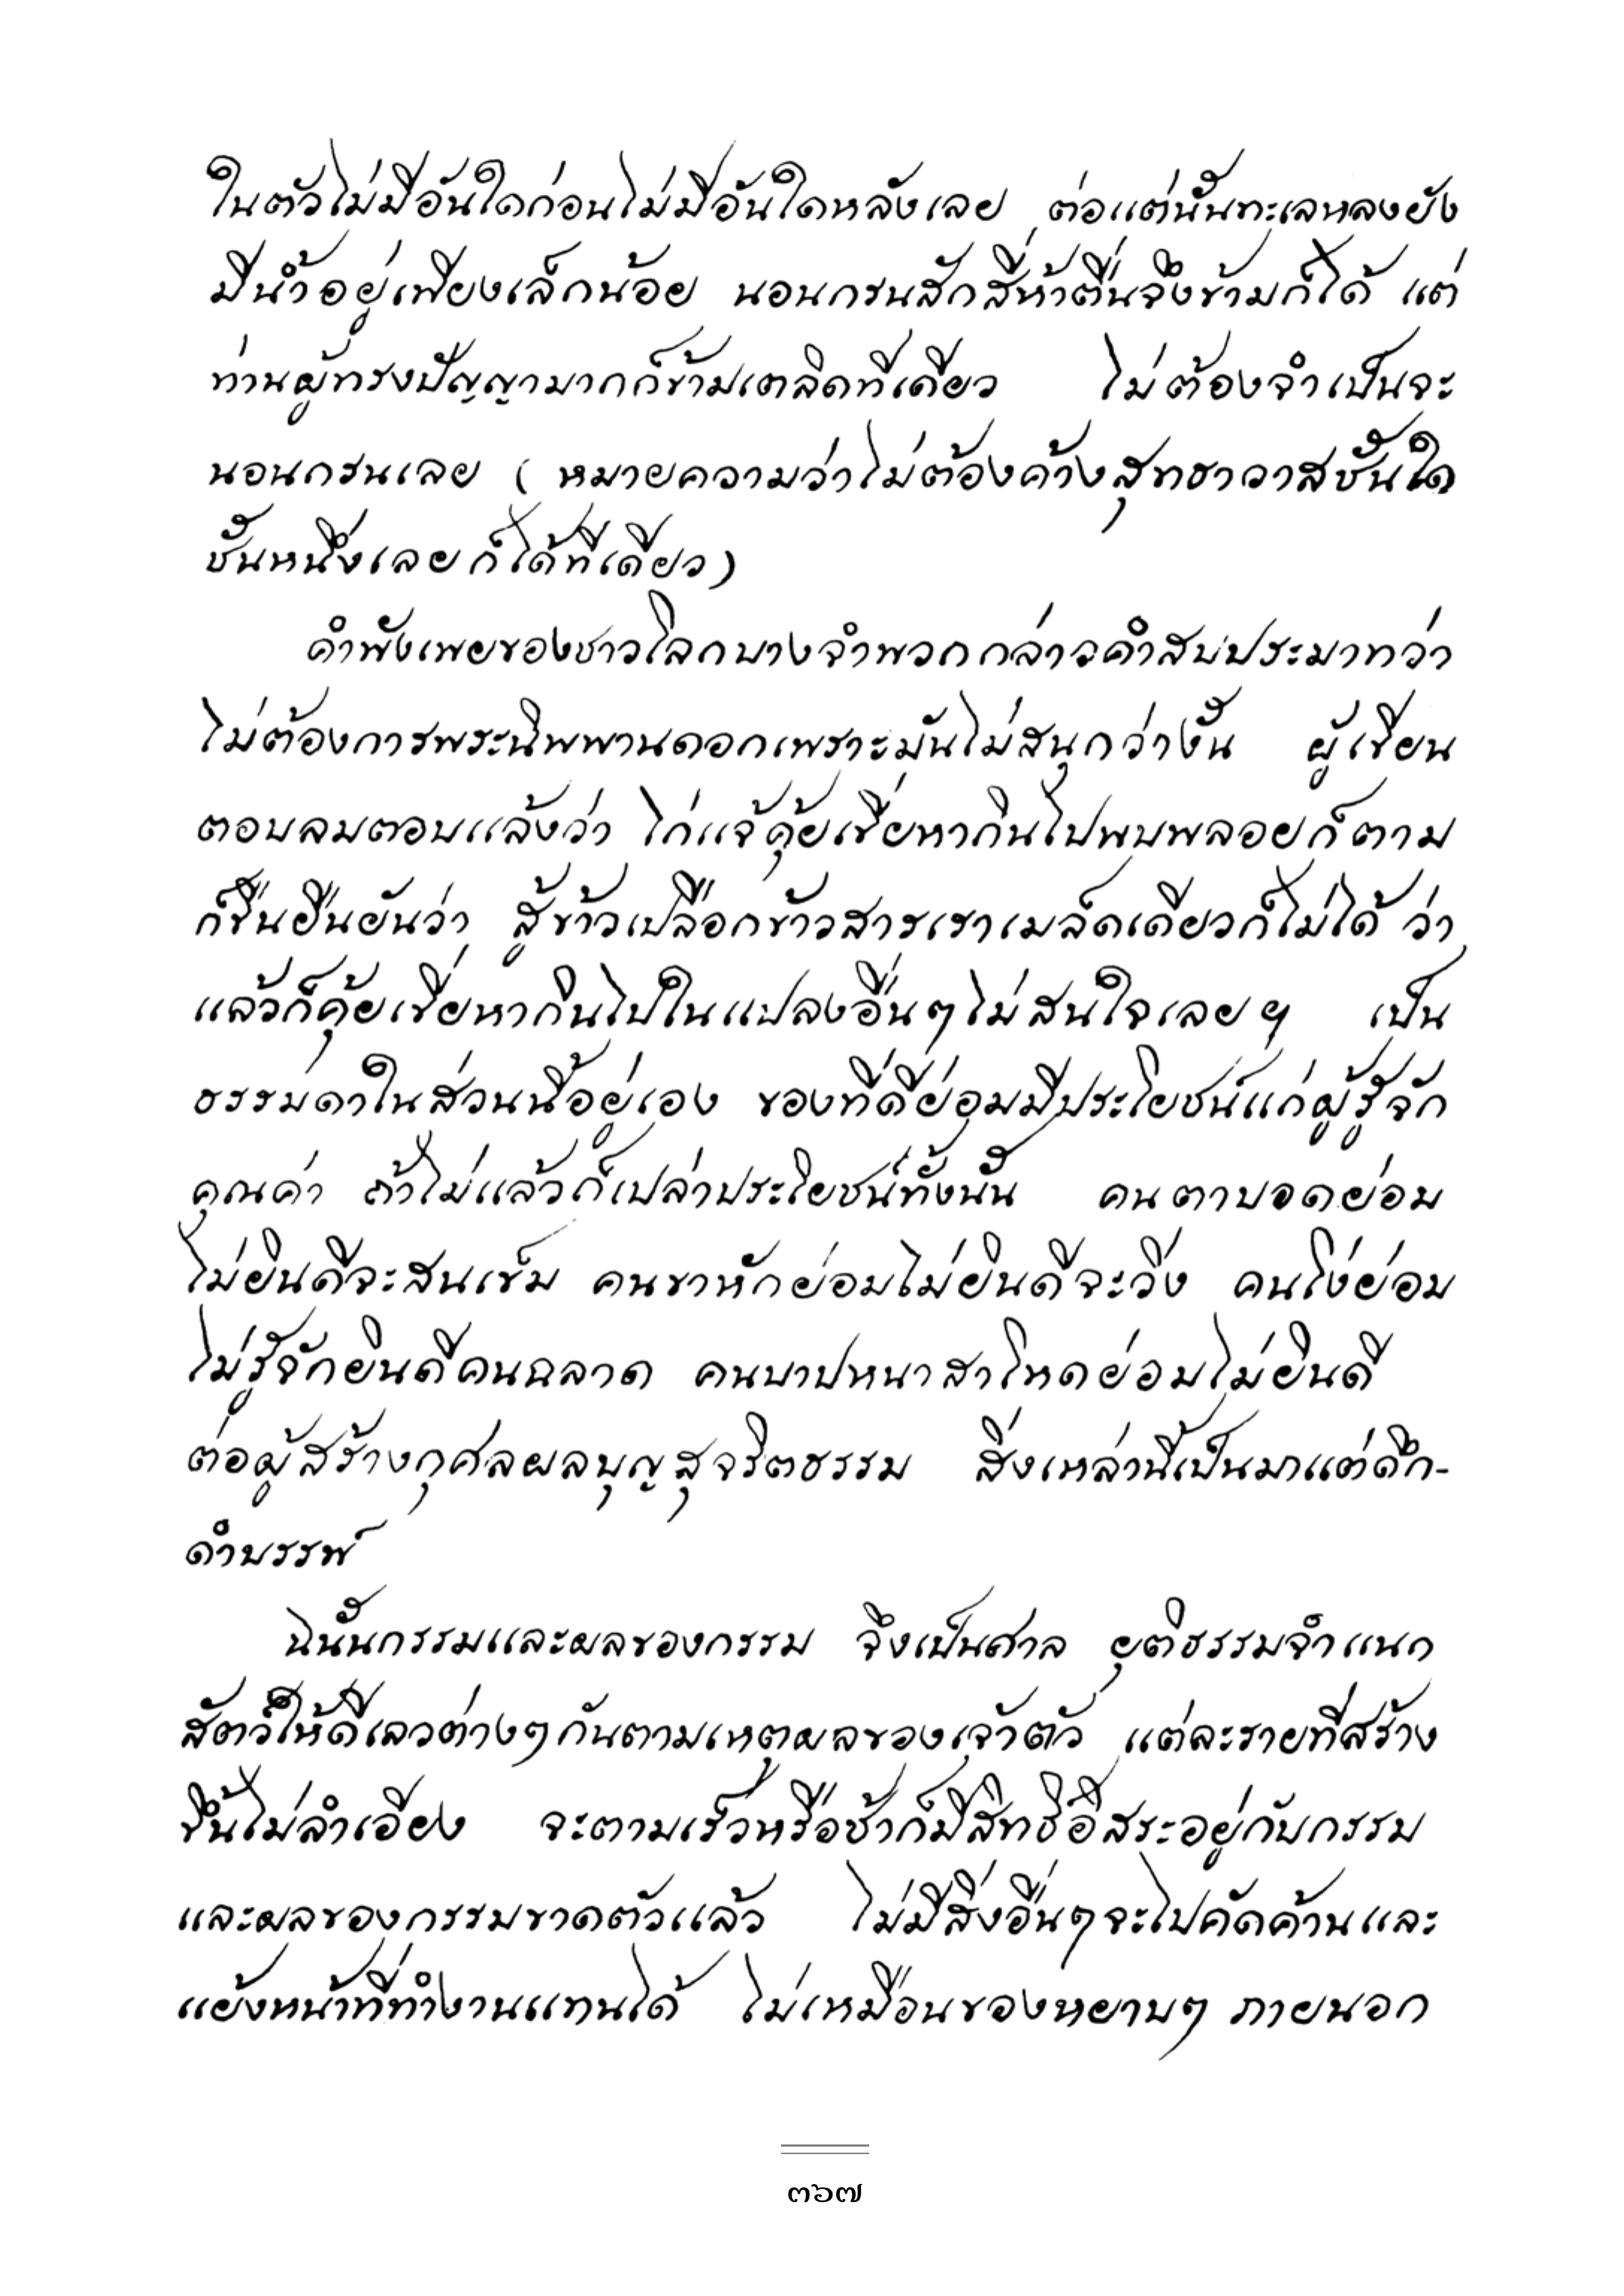 ในตัวไม่มีอันใดก่อนไม่มีอันใดหลังเลย ต่อแต่นั้นทะเลหลงยัง
มีน้ำอยู่เพียงเล็กน้อย นอนกรนสักสี่ห้าตื่นจึงข้ามก็ได้ แต่
ท่านผู้ทรงปัญญามากก็ข้ามเตลิดทีเดียว ไม่ต้องจำเป็นจะ
นอนกรนเลย ( หมายความว่าไม่ต้องค้างสุทธาวาสชั้นใด
ชั้นหนึ่งเลยก็ได้ทีเดียว)
คำพังเพยของชาวโลกบางจำพวกกล่าวคำสบประมาทว่า
ไม่ต้องการพระนิพพานดอกเพราะมันไม่สนุกว่างั้น ผู้เขียน
ตอบลมตอบแล้งว่า ไก่แจ้คุ้ยเขี่ยหากินไปพบพลอยก็ตาม
ก็ขืนยืนยันว่า สู้ข้าวเปลือกข้าวสารเราเมล็ดเดียวก็ไม่ได้ ว่า
แล้วก็คุ้ยเขี่ยหากินไปในแปลงอื่นๆไม่สนใจเลยฯ เป็น
ธรรมดาในส่วนนี้อยู่เอง ของที่ดีย่อมมีประโยชน์แก่ผู้รู้จัก
คุณค่า ถ้าไม่แล้วก็เปล่าประโยชน์ทั้งนั้น คนตาบอดย่อม
ไม่ยินดีจะสนเข็ม คนขาหักย่อมไม่ยินดีจะวิ่ง คนโง่ย่อม
ไม่รู้จักยินดีคนฉลาด คนบาปหนาสาโหดย่อมไม่ยินดี
ต่อผู้สร้างกุศลผลบุญสุจริตธรรม สิ่งเหล่านี้เป็นมาแต่ดึก-
ดำบรรพ์
ฉนั้นกรรมและผลของกรรม จึงเป็นศาล ยุติธรรมจำแนก
สัตว์ให้ดีเลวต่างๆกันตามเหตุผลของเจ้าตัว แต่ละรายที่สร้าง
ขึ้นไม่ลำเอียง จะตามเร็วหรือช้าก็มีสิทธิอิสระอยู่กับกรรม
และผลของกรรมขาดตัวแล้ว ไม่มีสิ่งอื่นๆจะไปคัดค้านและ
แย้งหน้าที่ทำงานแทนได้ ไม่เหมือนของหยาบๆ ภายนอก
๓๖๗